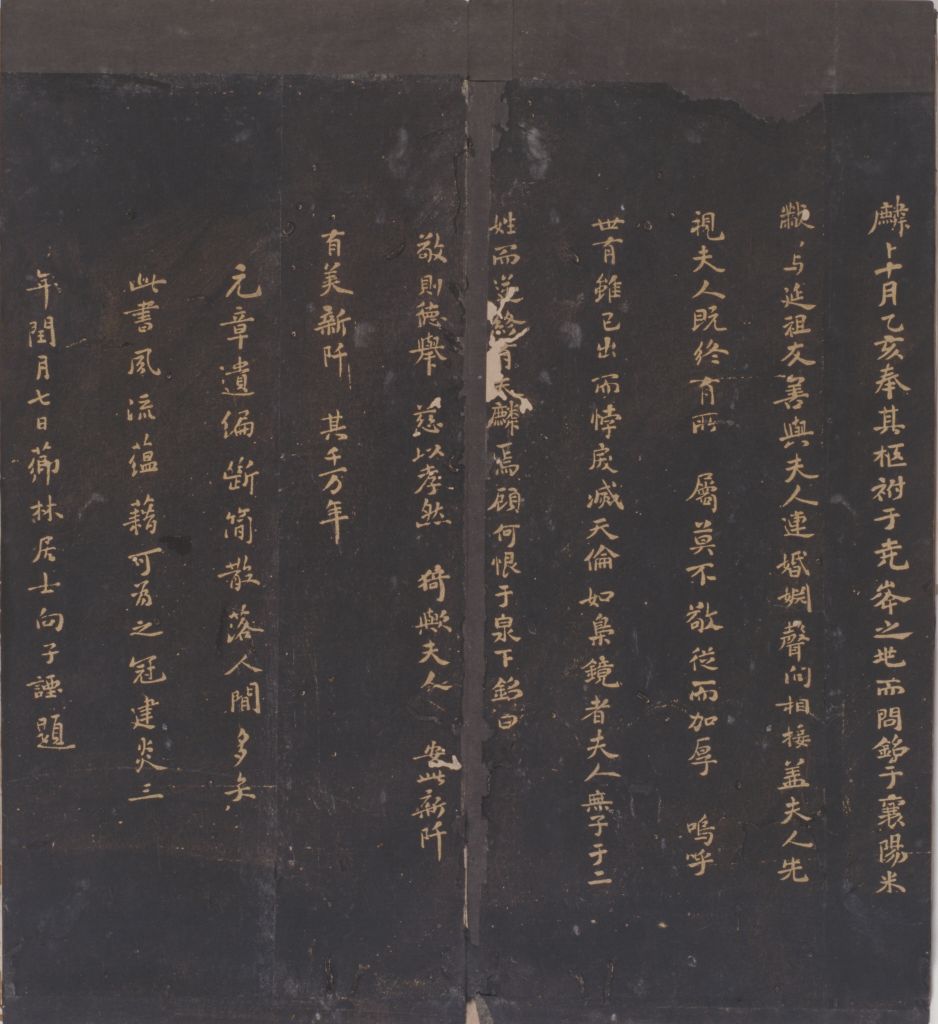 麟卜十月乙亥奉其柩祔于堯峯之地而問銘于襄陽米
黻々与延祖友善與夫人連婚姻聲問相接盖夫人先
視夫人既終有所屬莫不敬從而加厚嗚呼
世有雖己出而悖戾滅天倫如梟鏡者夫人無子于二
姓而送終有夫麟焉顧何恨于泉下銘曰
敬則德舉慈以孝然猗歟夫人安此新阡
有美新阡其千万年
元章遺編斷簡散落人間多矣
此書風流蘊藉可為之冠建炎三
年閏月七日薌林居士向子諲題